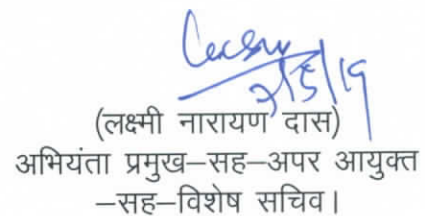 (लक्ष्मी नारायण दास)
अभियंता प्रमुख–सह–अपर आयुक्त
–सह–विशेष सचिव।